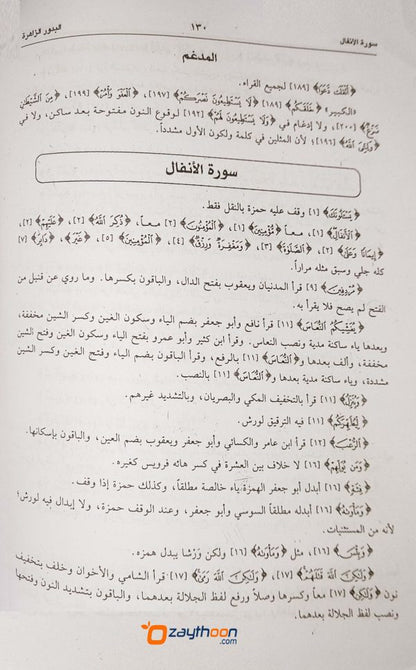 سورة الأنفال ١٣٠ البدور الزاهرة
المدغم
﴿أَثْقَلَت دَّعَوَا﴾ [١٨٩] لجميع القراء.
«الكبير» ﴿خَلَقَكُم﴾ [١٨٩] ﴿لَا يَسْتَطِيعُونَ نَصْرَكُمْ﴾ [١٩٧]، ﴿الْعَفْوَ وَأْمُرْ﴾ [١٩٩]، ﴿مِنَ الشَّيْطَانِ
نَزْغٌ﴾ [٢٠٠]، ولا إدغام في ﴿وَلَا يَسْتَطِيعُونَ لَهُمْ﴾ [١٩٢] لوقوع النون مفتوحة بعد ساكن، ولا في
﴿وَلِـِّيَ اللَّهُ﴾ [١٩٦]؛ لأن المثلين في كلمة ولكون الأول مشدداً.
سورة الأنفال
﴿يَسْأَلُونَكَ﴾ [١] وقف عليه حمزة بالنقل فقط.
﴿الْأَنفَالِ﴾ [١]، معاً، ﴿مُؤْمِنِينَ﴾ [١]، ﴿الْمُؤْمِنُونَ﴾ [٢] معاً، ﴿ذُكِرَ اللَّهُ﴾ [٢]، ﴿عَلَيْهِمْ﴾ [٢]،
﴿إِيمَانًا وَعَلَىٰ﴾ [٢]، ﴿الصَّلَاةَ﴾ [٣]، ﴿وَمَغْفِرَةٌ وَرِزْقٌ﴾ [٤]، ﴿الْمُؤْمِنِينَ﴾ [٥]، ﴿غَيْرَ﴾، ﴿دَابِرَ﴾ [٧]
كله جلي وسبق مثله مراراً.
﴿مُرْدِفِينَ﴾ [٩] قرأ المدنيان ويعقوب بفتح الدال، والباقون بكسرها. وما روي عن قنبل من
الفتح لم يصح فلا يقرأ به.
﴿يُغَشِّيكُمُ النُّعَاسَ﴾ [١١] قرأ نافع وأبو جعفر بضم الياء وسكون الغين وكسر الشين مخففة،
وبعدها ياء ساكنة مدية ونصب النعاس. وقرأ ابن كثير وأبو عمرو بفتح الياء وسكون الغين وفتح الشين
مخففة، وألف بعدها و﴿النُّعَاسُ﴾ [١١] بالرفع، وقرأ الباقون بضم الياء وفتح الغين وكسر الشين
مشددة، وياء ساكنة مدية بعدها و﴿النُّعَاسَ﴾ [١١] بالنصب.
﴿وَيُنَزِّلُ﴾ [١١] قرأ بالتخفيف المكي والبصريان، وبالتشديد غيرهم.
﴿لِيُطَهِّرَكُم﴾ [١١] فيه الترقيق لورش.
﴿الرُّعْبَ﴾ [١٢] قرأ ابن عامر والكسائي وأبو جعفر ويعقوب بضم العين، والباقون بإسكانها.
﴿وَمَن يُوَلِّهِمْ﴾ [١٦] لا خلاف بين العشرة في كسر هائه فرويس كغيره.
﴿فِئَةٍ﴾ [١٦] أبدل أبو جعفر الهمزة ياء خالصة مطلقاً، وكذلك حمزة إذا وقف.
﴿وَمَأْوَاهُ﴾ [١٦] أبدله مطلقاً السوسي وأبو جعفر، وعند الوقف حمزة، ولا إبدال فيه لورش؛
لأنه من المستثنيات.
﴿وَبِئْسَ﴾ [١٦]، مثل ﴿وَمَأْوَاهُ﴾ [١٦] ولكن وَرْشا يبدل همزه.
﴿وَلَٰكِنَّ اللَّهَ قَتَلَهُمْ﴾ [١٧]، ﴿وَلَٰكِنَّ اللَّهَ رَمَىٰ﴾ [١٧] قرأ الشامي والأخوان وخلف بتخفيف
نون ﴿وَلَٰكِن﴾ [١٧] معاً وكسرها وصلاً ورفع لفظ الجلالة بعدهما، والباقون بتشديد النون وفتحها
ونصب لفظ الجلالة بعدهما.
zaythoon
.com